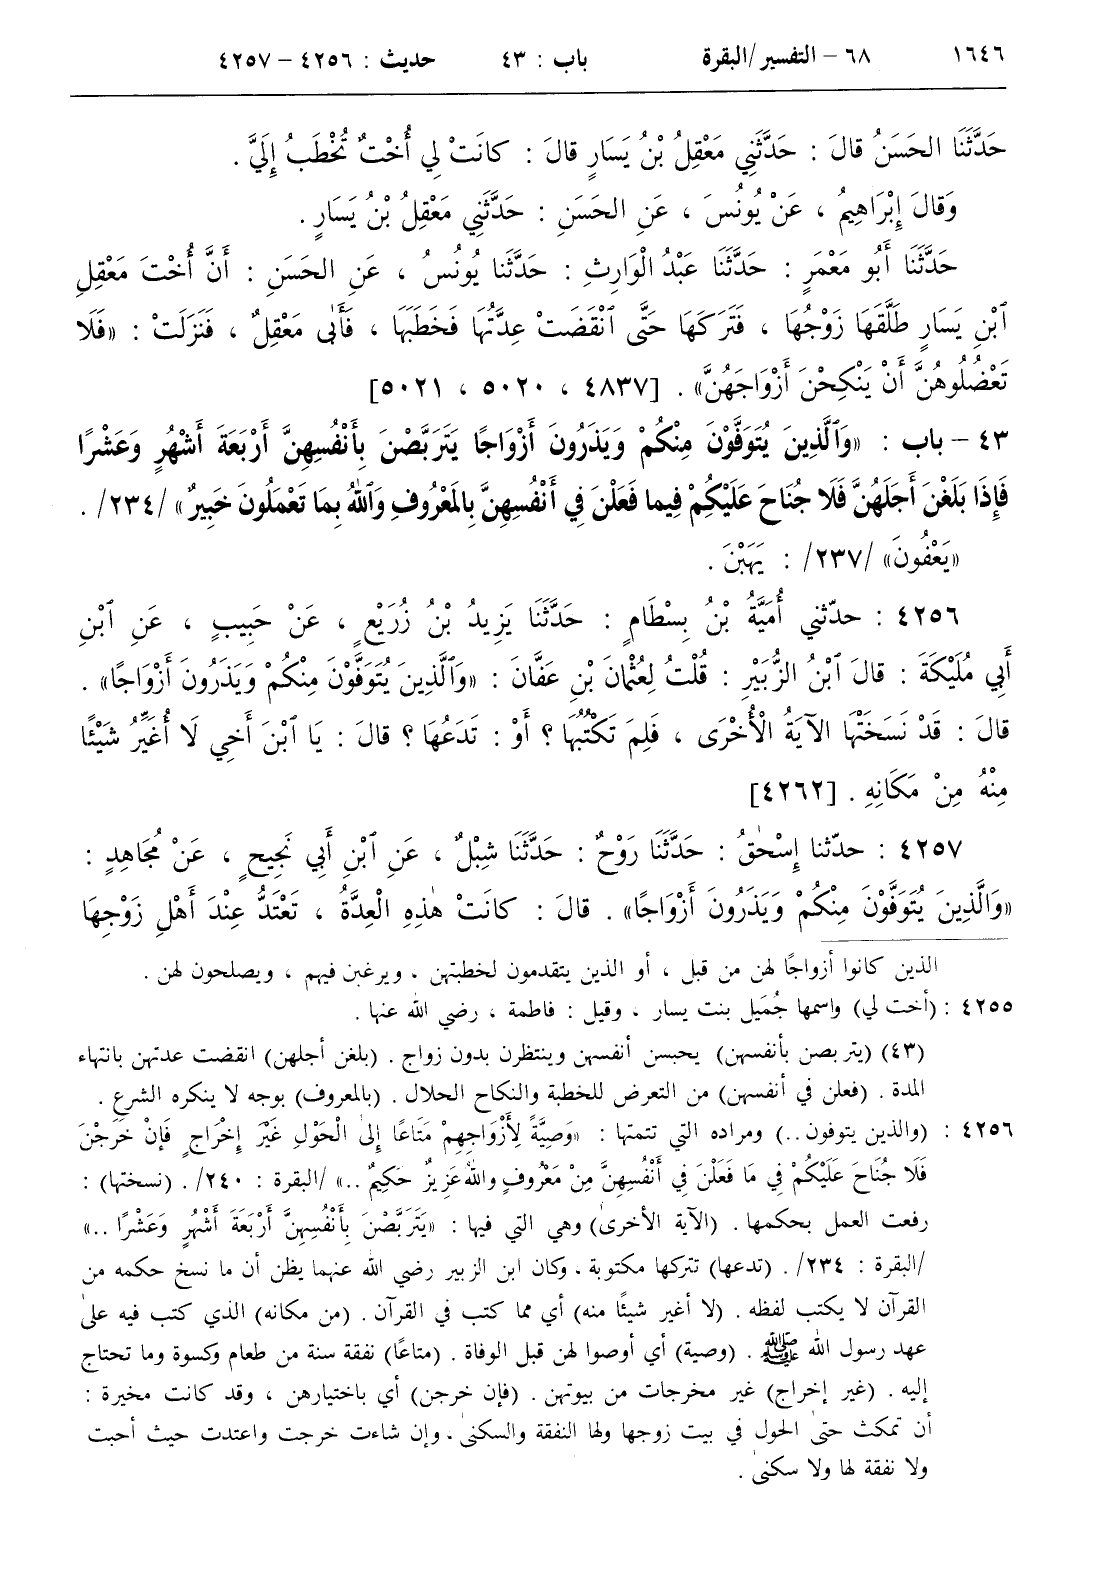 ١٦٤٦ ٦٨ – التفسير/البقرة باب : ٤٣ حديث : ٤٢٥٦ – ٤٢٥٧
حَدَّثَنَا الحَسَنُ قالَ : حَدَّثَنِي مَعْقِلُ بْنُ يَسَارٍ قالَ : كانَتْ لِي أُخْتٌ تُخْطَبُ إِلَيَّ .
وَقالَ إِبْرَاهِيمُ ، عَنْ يُونُسَ ، عَنِ الحَسَنِ : حَدَّثَنِي مَعْقِلُ بْنُ يَسَارٍ .
حَدَّثَنَا أَبُو مَعْمَرٍ : حَدَّثَنَا عَبْدُ الْوَارِثِ : حَدَّثَنَا يُونُسُ ، عَنِ الحَسَنِ : أَنَّ أُخْتَ مَعْقِلِ
ٱبْنِ يَسَارٍ طَلَّقَهَا زَوْجُهَا ، فَتَرَكَهَا حَتَّى ٱنْقَضَتْ عِدَّتُهَا فَخَطَبَهَا ، فَأَبٰى مَعْقِلٌ ، فَنَزَلَتْ : «فَلَا
تَعْضُلُوهُنَّ أَنْ يَنْكِحْنَ أَزْوَاجَهُنَّ» . [٤٨٣٧ ، ٥٠٢٠ ، ٥٠٢١]
٤٣ – باب : «وَٱلَّذِينَ يُتَوَفَّوْنَ مِنْكُمْ وَيَذَرُونَ أَزْوَاجًا يَتَرَبَّصْنَ بِأَنْفُسِهِنَّ أَرْبَعَةَ أَشْهُرٍ وَعَشْرًا
فَإِذَا بَلَغْنَ أَجَلَهُنَّ فَلَا جُنَاحَ عَلَيْكُمْ فِيما فَعَلْنَ فِي أَنْفُسِهِنَّ بِالمَعْرُوفِ وَٱللهُ بِمَا تَعْمَلُونَ خَبِيرٌ» /٢٣٤/ .
«يَعْفُونَ» /٢٣٧/ : يَهَبْنَ .
٤٢٥٦ : حدّثني أُمَيَّةُ بْنُ بِسْطَامٍ : حَدَّثَنَا يَزِيدُ بْنُ زُرَيْعٍ ، عَنْ حَبِيبٍ ، عَنِ ٱبْنِ
أَبِي مُلَيْكَةَ : قالَ ٱبْنُ الزُّبَيْرِ : قُلْتُ لِعُثْمَانَ بْنِ عَفَّانَ : «وَٱلَّذِينَ يُتَوَفَّوْنَ مِنْكُمْ وَيَذَرُونَ أَزْوَاجًا» .
قالَ : قَدْ نَسَخَتْهَا الآيَةُ الْأُخْرَى ، فَلِمَ تَكْتُبُهَا ؟ أَوْ : تَدَعُهَا ؟ قالَ : يَا ٱبْنَ أَخِي لَا أُغَيِّرُ شَيْئًا
مِنْهُ مِنْ مَكَانِهِ . [٤٢٦٢]
٤٢٥٧ : حدّثنا إِسْحٰقُ : حَدَّثَنَا رَوْحٌ : حَدَّثَنَا شِبْلٌ ، عَنِ ٱبْنِ أَبِي نَجِيحٍ ، عَنْ مُجَاهِدٍ :
«وَالَّذِينَ يُتَوَفَّوْنَ مِنْكُمْ وَيَذَرُونَ أَزْوَاجًا» . قالَ : كانَتْ هٰذِهِ الْعِدَّةُ ، تَعْتَدُّ عِنْدَ أَهْلِ زَوْجِهَا
الذين كانوا أزواجًا لهن من قبل ، أو الذين يتقدمون لخطبتهن ، ويرغبن فيهم ، ويصلحون لهن .
٤٢٥٥ : (أخت لي) واسمها جُمَيل بنت يسار ، وقيل : فاطمة ، رضي الله عنها .
(٤٣) (يتربصن بأنفسهن) يحبسن أنفسهن وينتظرن بدون زواج . (بلغن أجلهن) انقضت عدتهن بانتهاء
المدة . (فعلن في أنفسهن) من التعرض للخطبة والنكاح الحلال . (بالمعروف) بوجه لا ينكره الشرع .
٤٢٥٦ : (والذين يتوفون ..) ومراده التي تتمتها : «وَصِيَّةً لِأَزْوَاجِهِمْ مَتَاعًا إِلىٰ الْحَوْلِ غَيْرَ إِخْرَاجٍ فَإِنْ خَرَجْنَ
فَلَا جُنَاحَ عَلَيْكُمْ فِي مَا فَعَلْنَ فِي أَنْفُسِهِنَّ مِنْ مَعْرُوفٍ واللهُ عَزِيزٌ حَكِيمٌ ..» /البقرة : ٢٤٠/ . (نسختها) :
رفعت العمل بحكمها . (الآية الأخرىٰ) وهي التي فيها : «يَتَرَبَّصْنَ بِأَنْفُسِهِنَّ أَرْبَعَةَ أَشْهُرٍ وَعَشْرًا ..»
/البقرة : ٢٣٤/ . (تدعها) تتركها مكتوبة . وكان ابن الزبير رضي الله عنهما يظن أن ما نسخ حكمه من
القرآن لا يكتب لفظه . (لا أغير شيئًا منه) أي مما كتب في القرآن . (من مكانه) الذي كتب فيه علىٰ
عهد رسول الله ﷺ . (وصية) أي أوصوا لهن قبل الوفاة . (متاعًا) نفقة سنة من طعام وكسوة وما تحتاج
إليه . (غير إخراج) غير مخرجات من بيوتهن . (فإن خرجن) أي باختيارهن ، وقد كانت مخيرة :
أن تمكث حتىٰ الحول في بيت زوجها ولها النفقة والسكنىٰ . وإن شاءت خرجت واعتدت حيث أحبت
ولا نفقة لها ولا سكنىٰ .